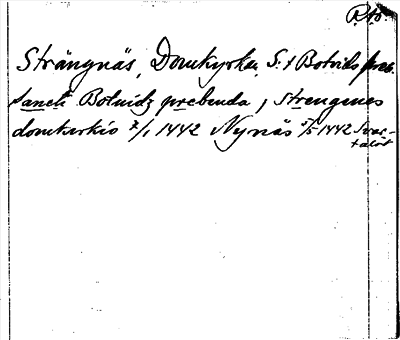 Rto.
Strängnäs, Domkyrka, S:t Botvids preb.
Sancti Botuidz prebenda, Strengenes
domkirkio 7/1 1442 Nynäs 5/5 1442 Svar-